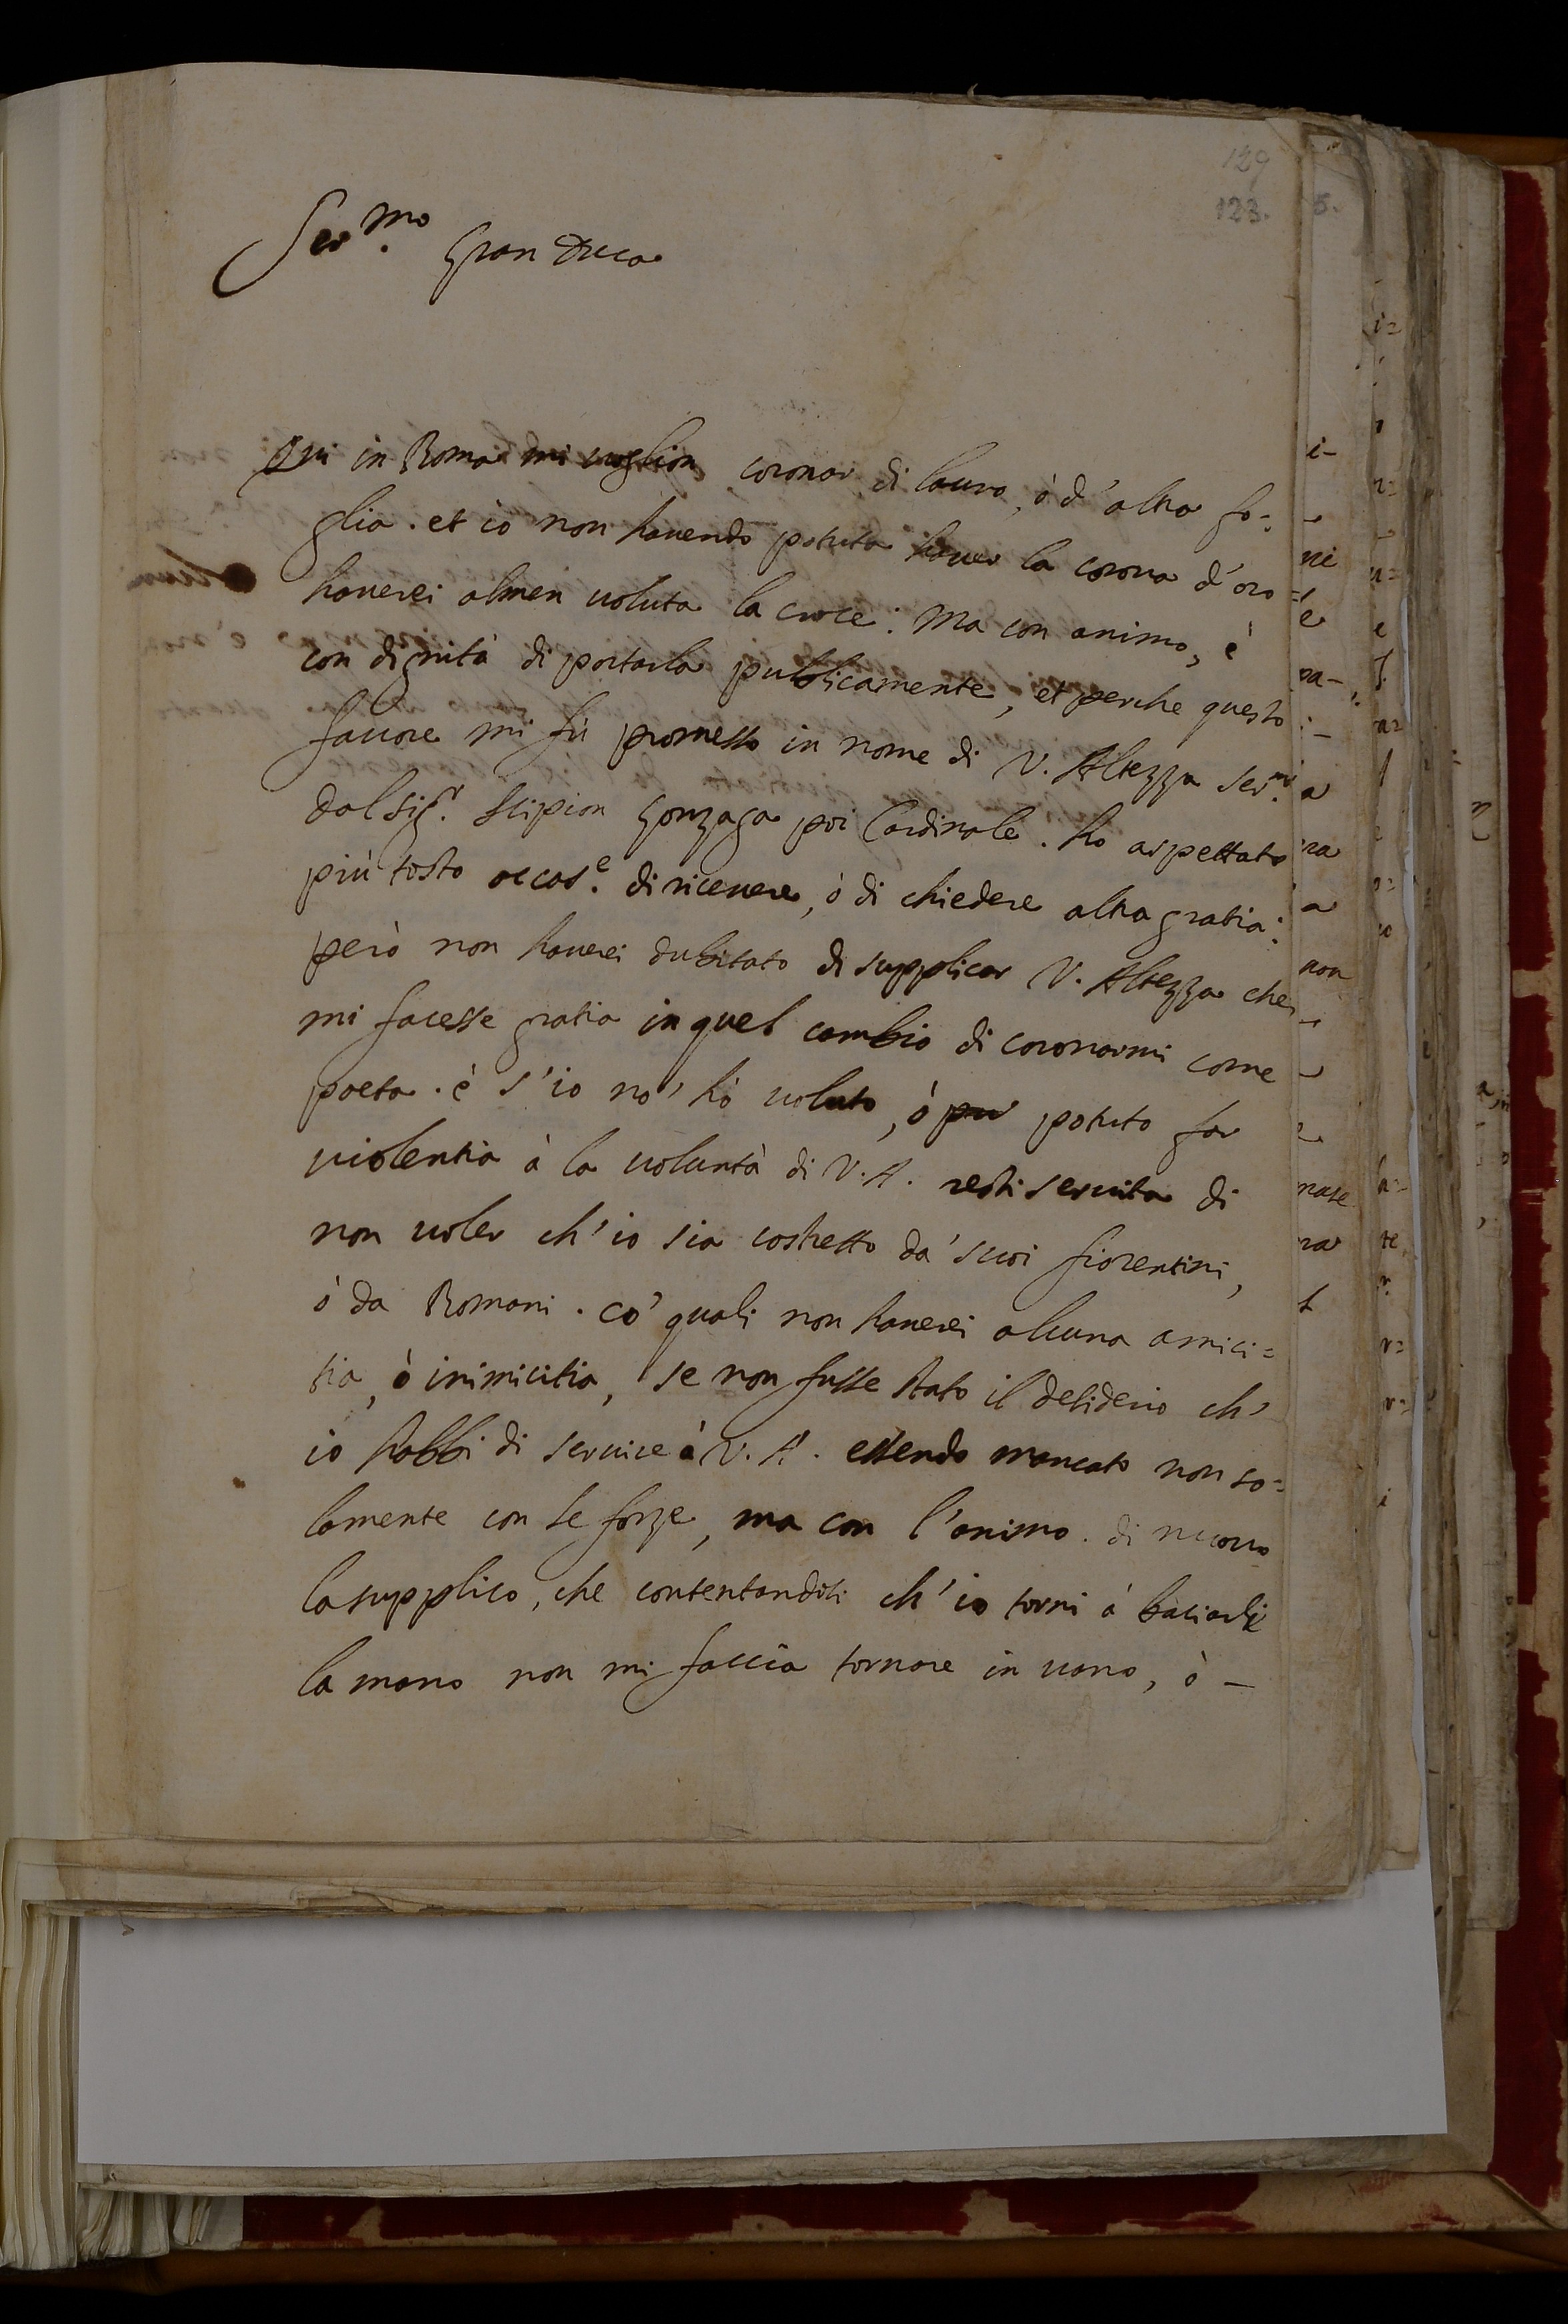 129
123.
Ser.mo Gran Duca
Qui in Roma mi voglion coronar di lauro, ò d'altra fo=
glia. et io non havendo potuta haver la corona d'oro
haverei almen voluta la croce: Ma con animo, è
con dignità di portarla publicamente, et perche questo
favore mi fù promesso in nome di V. Altezza Ser.ma
dal sig.r Scipion Gonzaga poi Cardinale. ho aspettato
più tosto occas.e di ricevere, ò di chiedere altra gratia:
però non haverei dubitato di supplicar V. Altezza che
mi facesse gratia in quel cambio di coronarmi come
poeta. è s'io no' hò voluto, ò potuto far
violentia à la voluntà di V. A. resti servita di
non voler ch'io sia costretto da' suoi fiorentini,
ò da Romani. co' quali non haverei alcuna amici=
tia, ò inimicitia, se non fusse stato il desiderio ch'
io hebbi di servire à V. A. essendo mancato non so=
lamente con le forze, ma con l'animo. di nuovo
la supplico, che contentandosi ch'io torni à baciarli
la mano non mi faccia tornare in vano, ò –